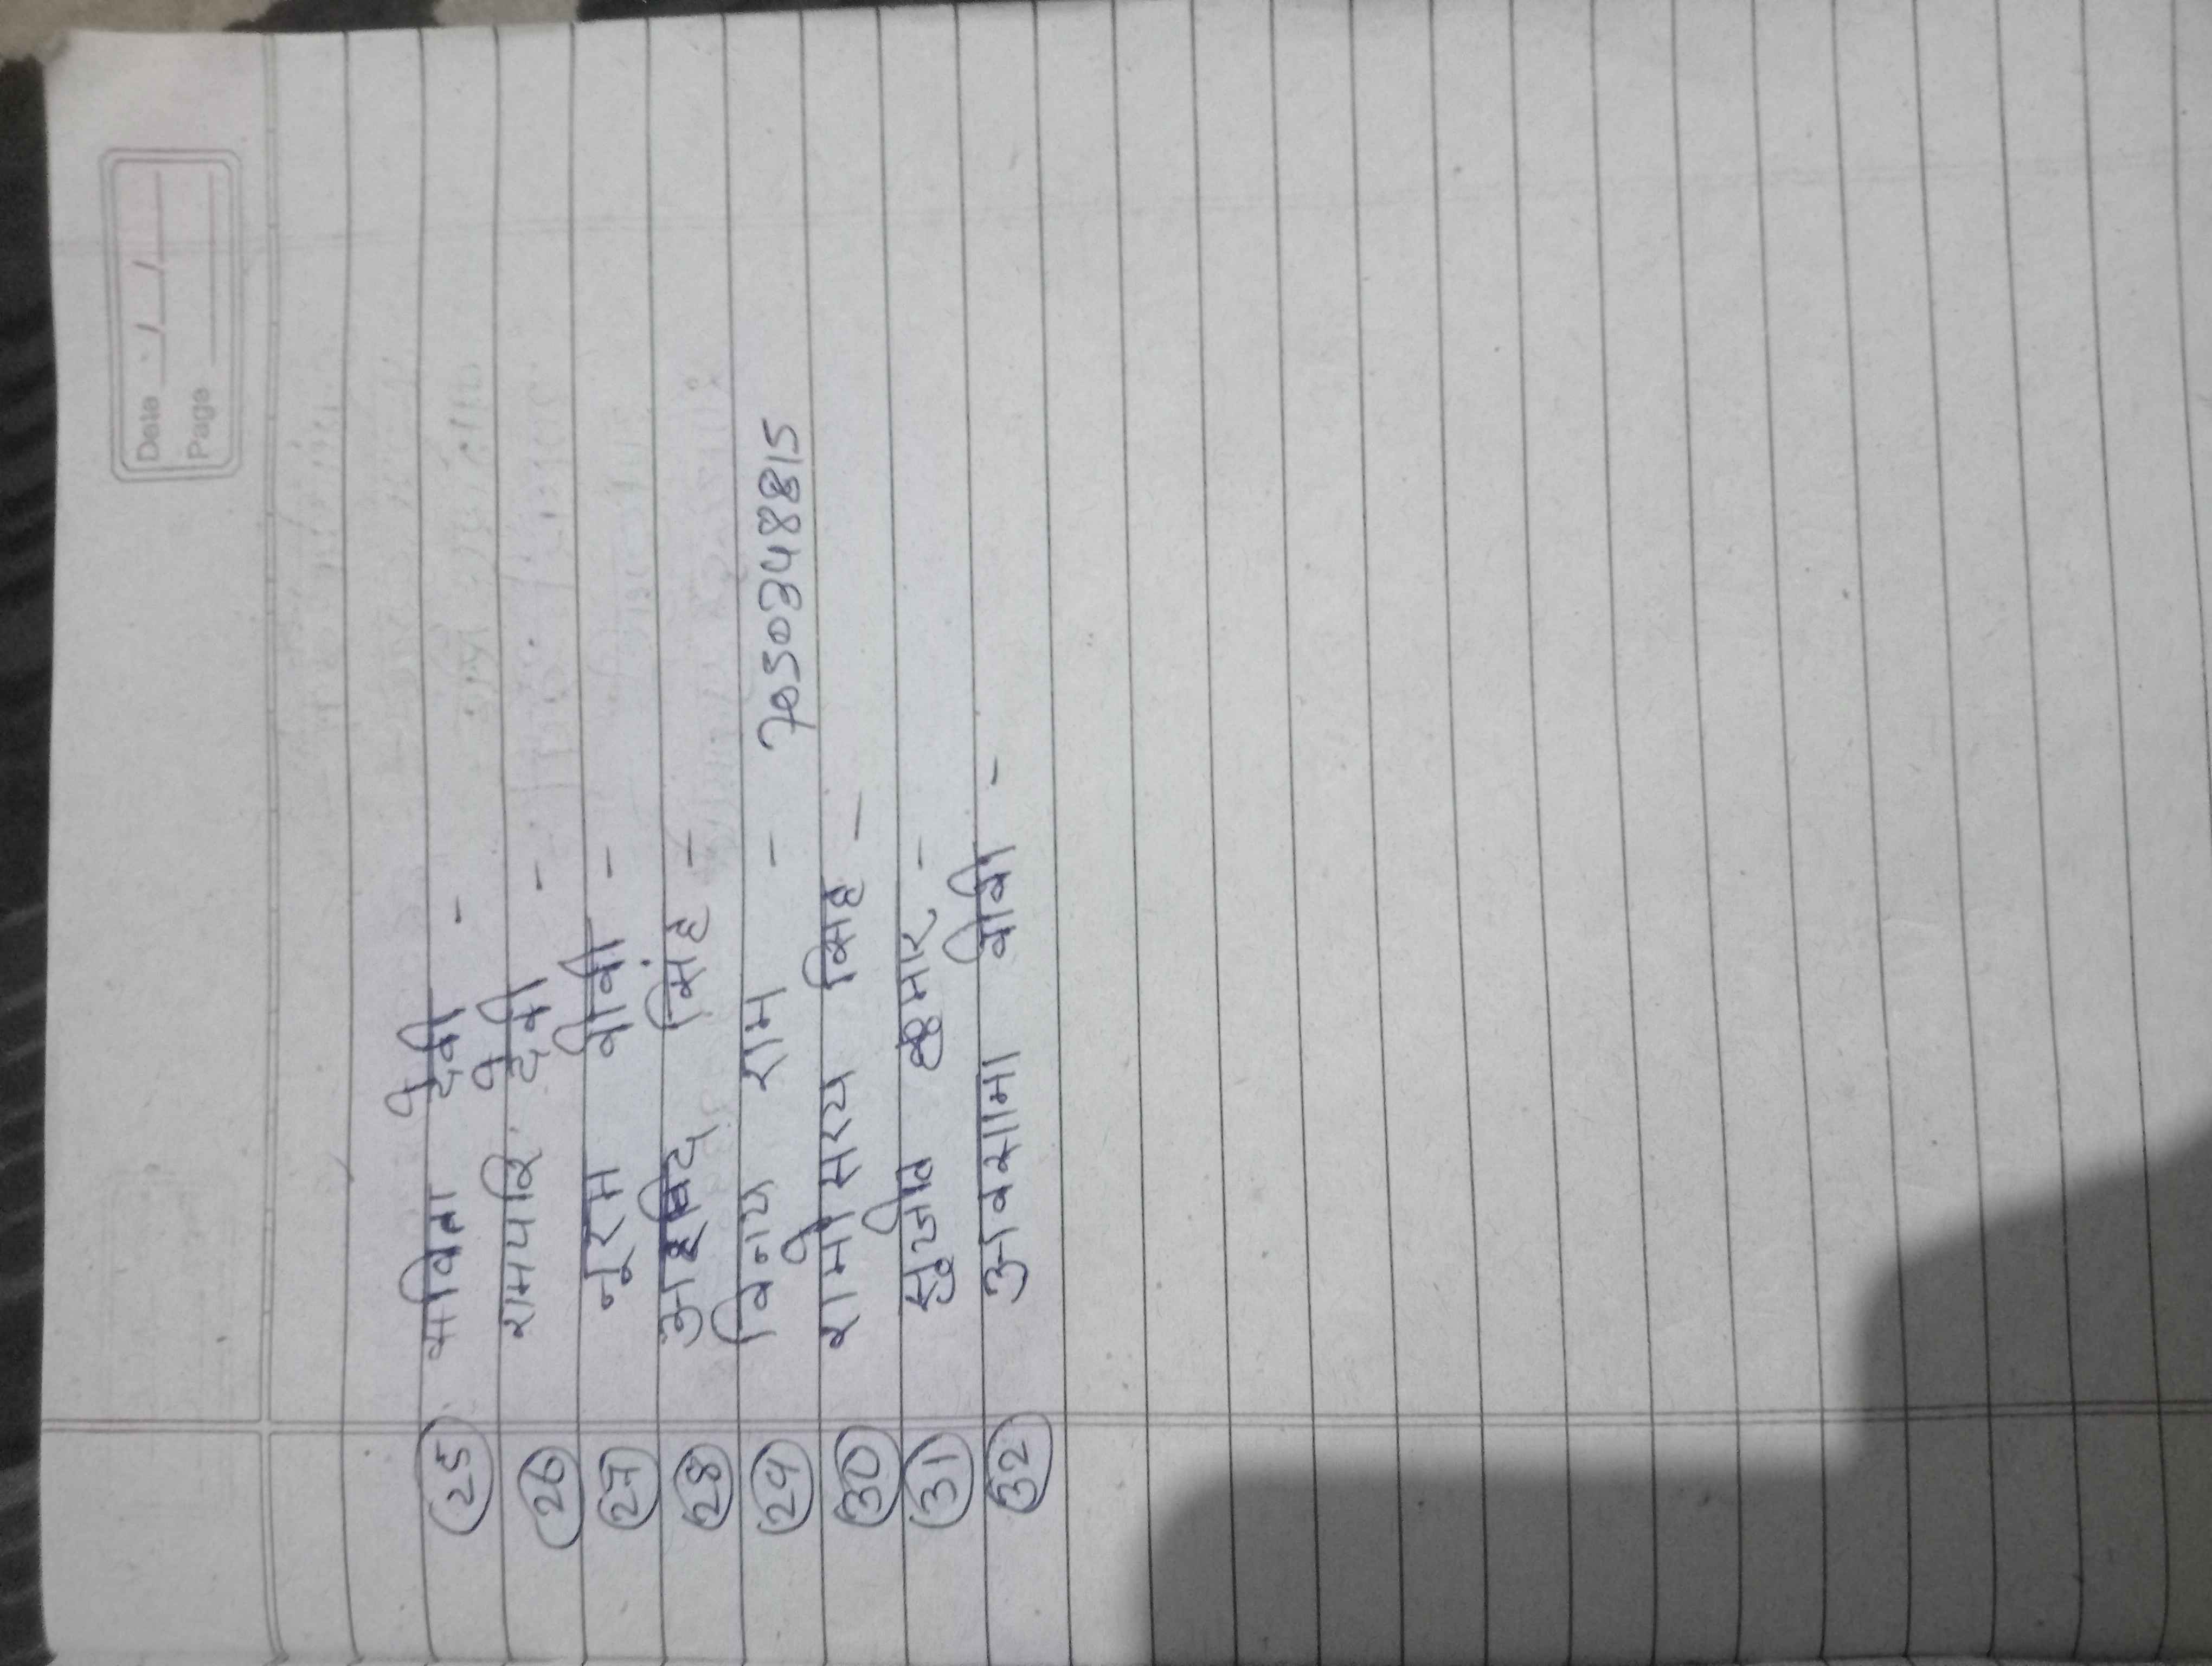 Date / /
Page
25 सविता देवी -
26 रामपरि देवी -
27 नूरम बीबी -
28 सिंह -
29 विनय राम - 7050348815
30 रामेसरय सिंह -
31 सुजीत कुमार -
32 बीबी -